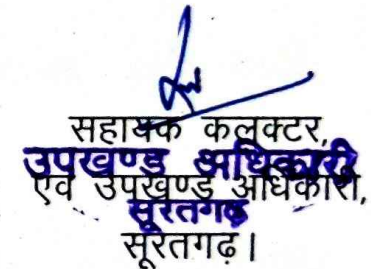 सहायक कलक्टर,
उपखण्ड अधिकारी
एवं उपखण्ड अधिकारी,
सूरतगढ़
सूरतगढ़।